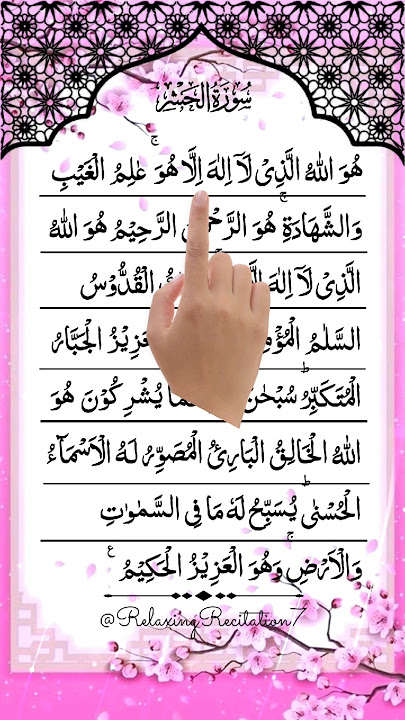 سُوْرَةُ الْحَشْرِ
هُوَ اللّٰهُ الَّذِیْ لَاۤ اِلٰهَ اِلَّا هُوَ ۚ عٰلِمُ الْغَیْبِ
وَالشَّهَادَةِ ۚ هُوَ الرَّحْمٰنُ الرَّحِیْمُ هُوَ اللّٰهُ
الَّذِیْ لَاۤ اِلٰهَ الْقُدُّوْسُ
السَّلٰمُ الْعَزِیْزُ الْجَبَّارُ
الْمُتَكَبِّرُ ؕ سُبْحٰنَ یُشْرِكُوْنَ هُوَ
اللّٰهُ الْخَالِقُ الْبَارِئُ الْمُصَوِّرُ لَهُ الْاَسْمَآءُ
الْحُسْنٰی ؕ یُسَبِّحُ لَهٗ مَا فِی السَّمٰوٰتِ
وَالْاَرْضِ ۚ وَهُوَ الْعَزِیْزُ الْحَكِیْمُ ع
@RelaxingRecitation7